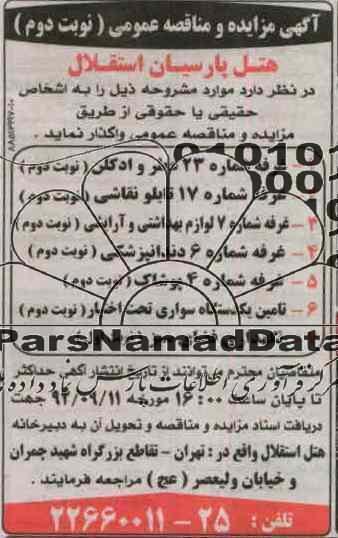 آگهی مزایده و مناقصه عمومی ( نوبت دوم )
هتل پارسیان استقلال
در نظر دارد موارد مشروحه ذیل را به اشخاص
حقیقی یا حقوقی از طریق
مزایده و مناقصه عمومی واگذار نماید .
غرفه شماره ۲۳ عطر و ادکلن ( نوبت دوم )
غرفه شماره ۱۷ تابلو نقاشی ( نوبت دوم )
۳ - غرفه شماره ۷ لوازم بهداشتی و آرایشی ( نوبت دوم )
۴ - غرفه شماره ۶ دندانپزشکی ( نوبت دوم )
۵ - غرفه شماره ۴ پوشاک ( نوبت دوم )
۶ - تامین یکدستگاه سواری تحت اختیار ( نوبت دوم )
ParsNamadData
متقاضیان محترم می‌توانند از تاریخ انتشار آگهی حداکثر
تا پایان ساعت ۱۶:۰۰ مورخه ۹۲/۰۹/۱۱ جهت
دریافت اسناد مزایده و مناقصه و تحویل آن به دبیرخانه
هتل استقلال واقع در : تهران - تقاطع بزرگراه شهید چمران
و خیابان ولیعصر ( عج ) مراجعه فرمایند .
تلفن : ۲۵ - ۲۲۶۶۰۰۱۱